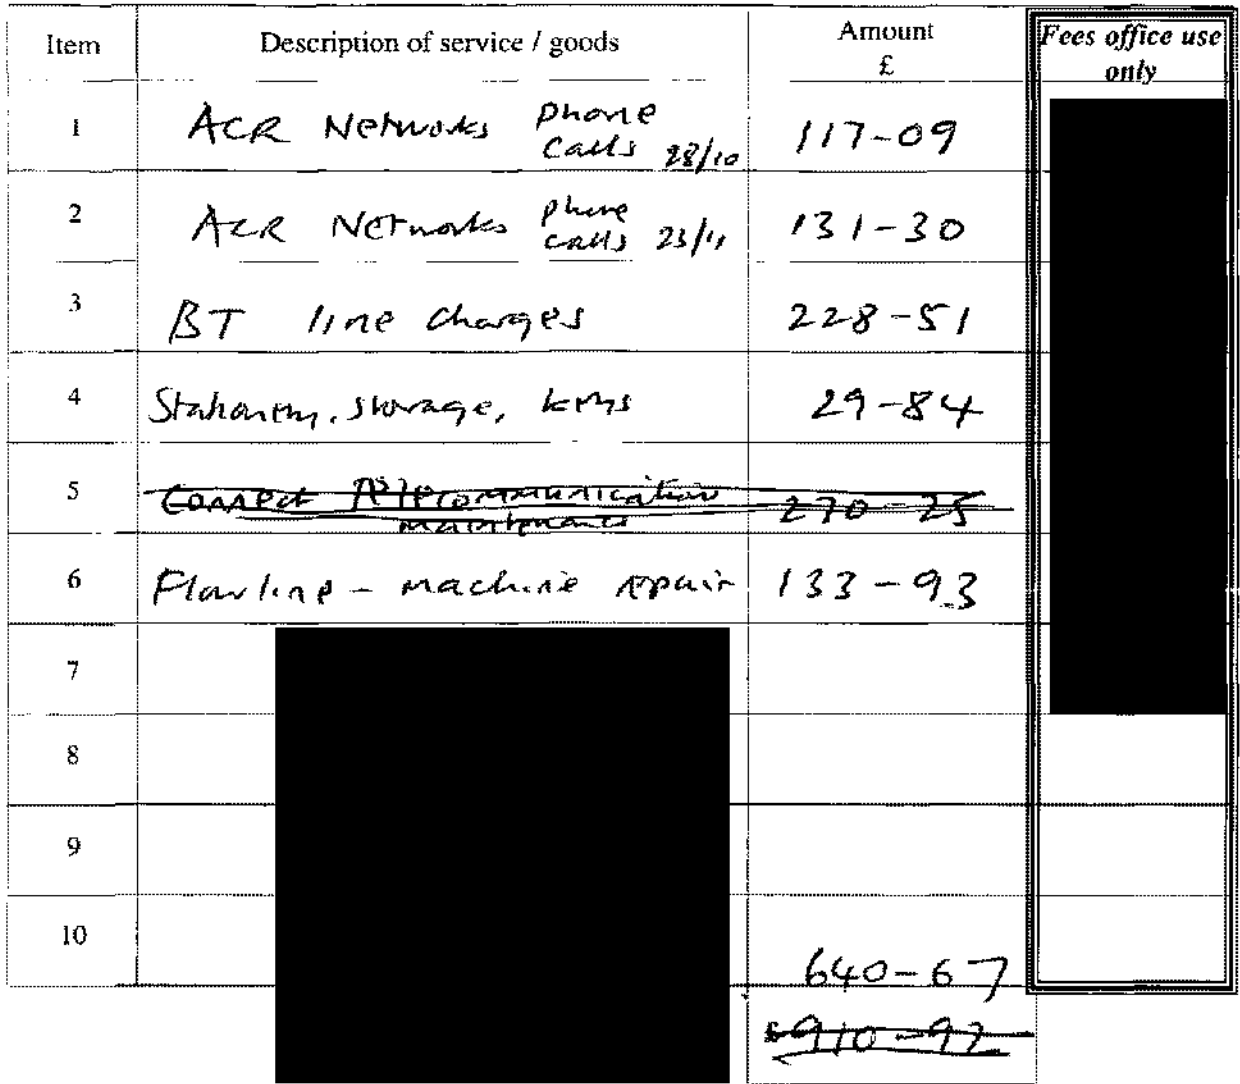 Item Description of service / goods Amount £ Fees office use only
1 ACR Networks phone calls 28/10 117-09
2 ACR Networks phone calls 23/11 131-30
3 BT line charges 228-51
4 Stationery, storage, keys 29-84
5 Connect Telecommunication maintenance 270-25
6 Flowline - machine repair 133-93
7
8
9
10
640-67
£910-92